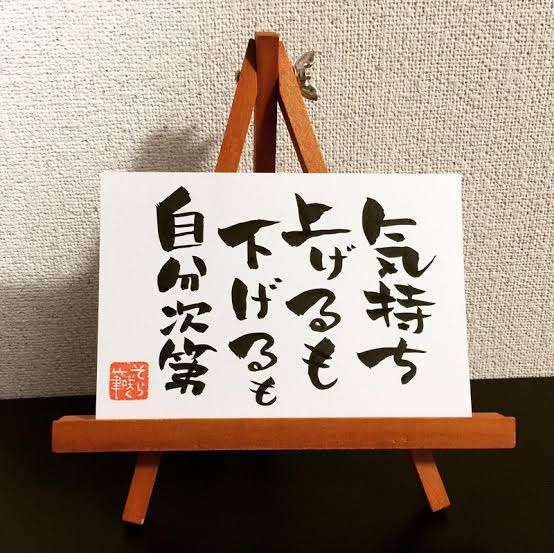 気持ち
上げるも
下げるも
自分次第